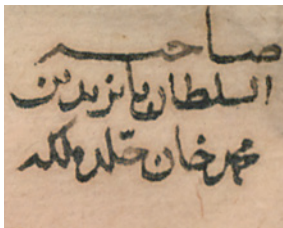 صاحبه
السلطان بايزيد بن
محمد خان خلد ملكه